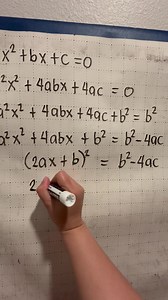 x² + bx + c = 0
²x² + 4abx + 4ac = 0
a²x² + 4abx + 4ac + b² = b²
a²x² + 4abx + b² = b² - 4ac
(2ax + b)² = b² - 4ac
2